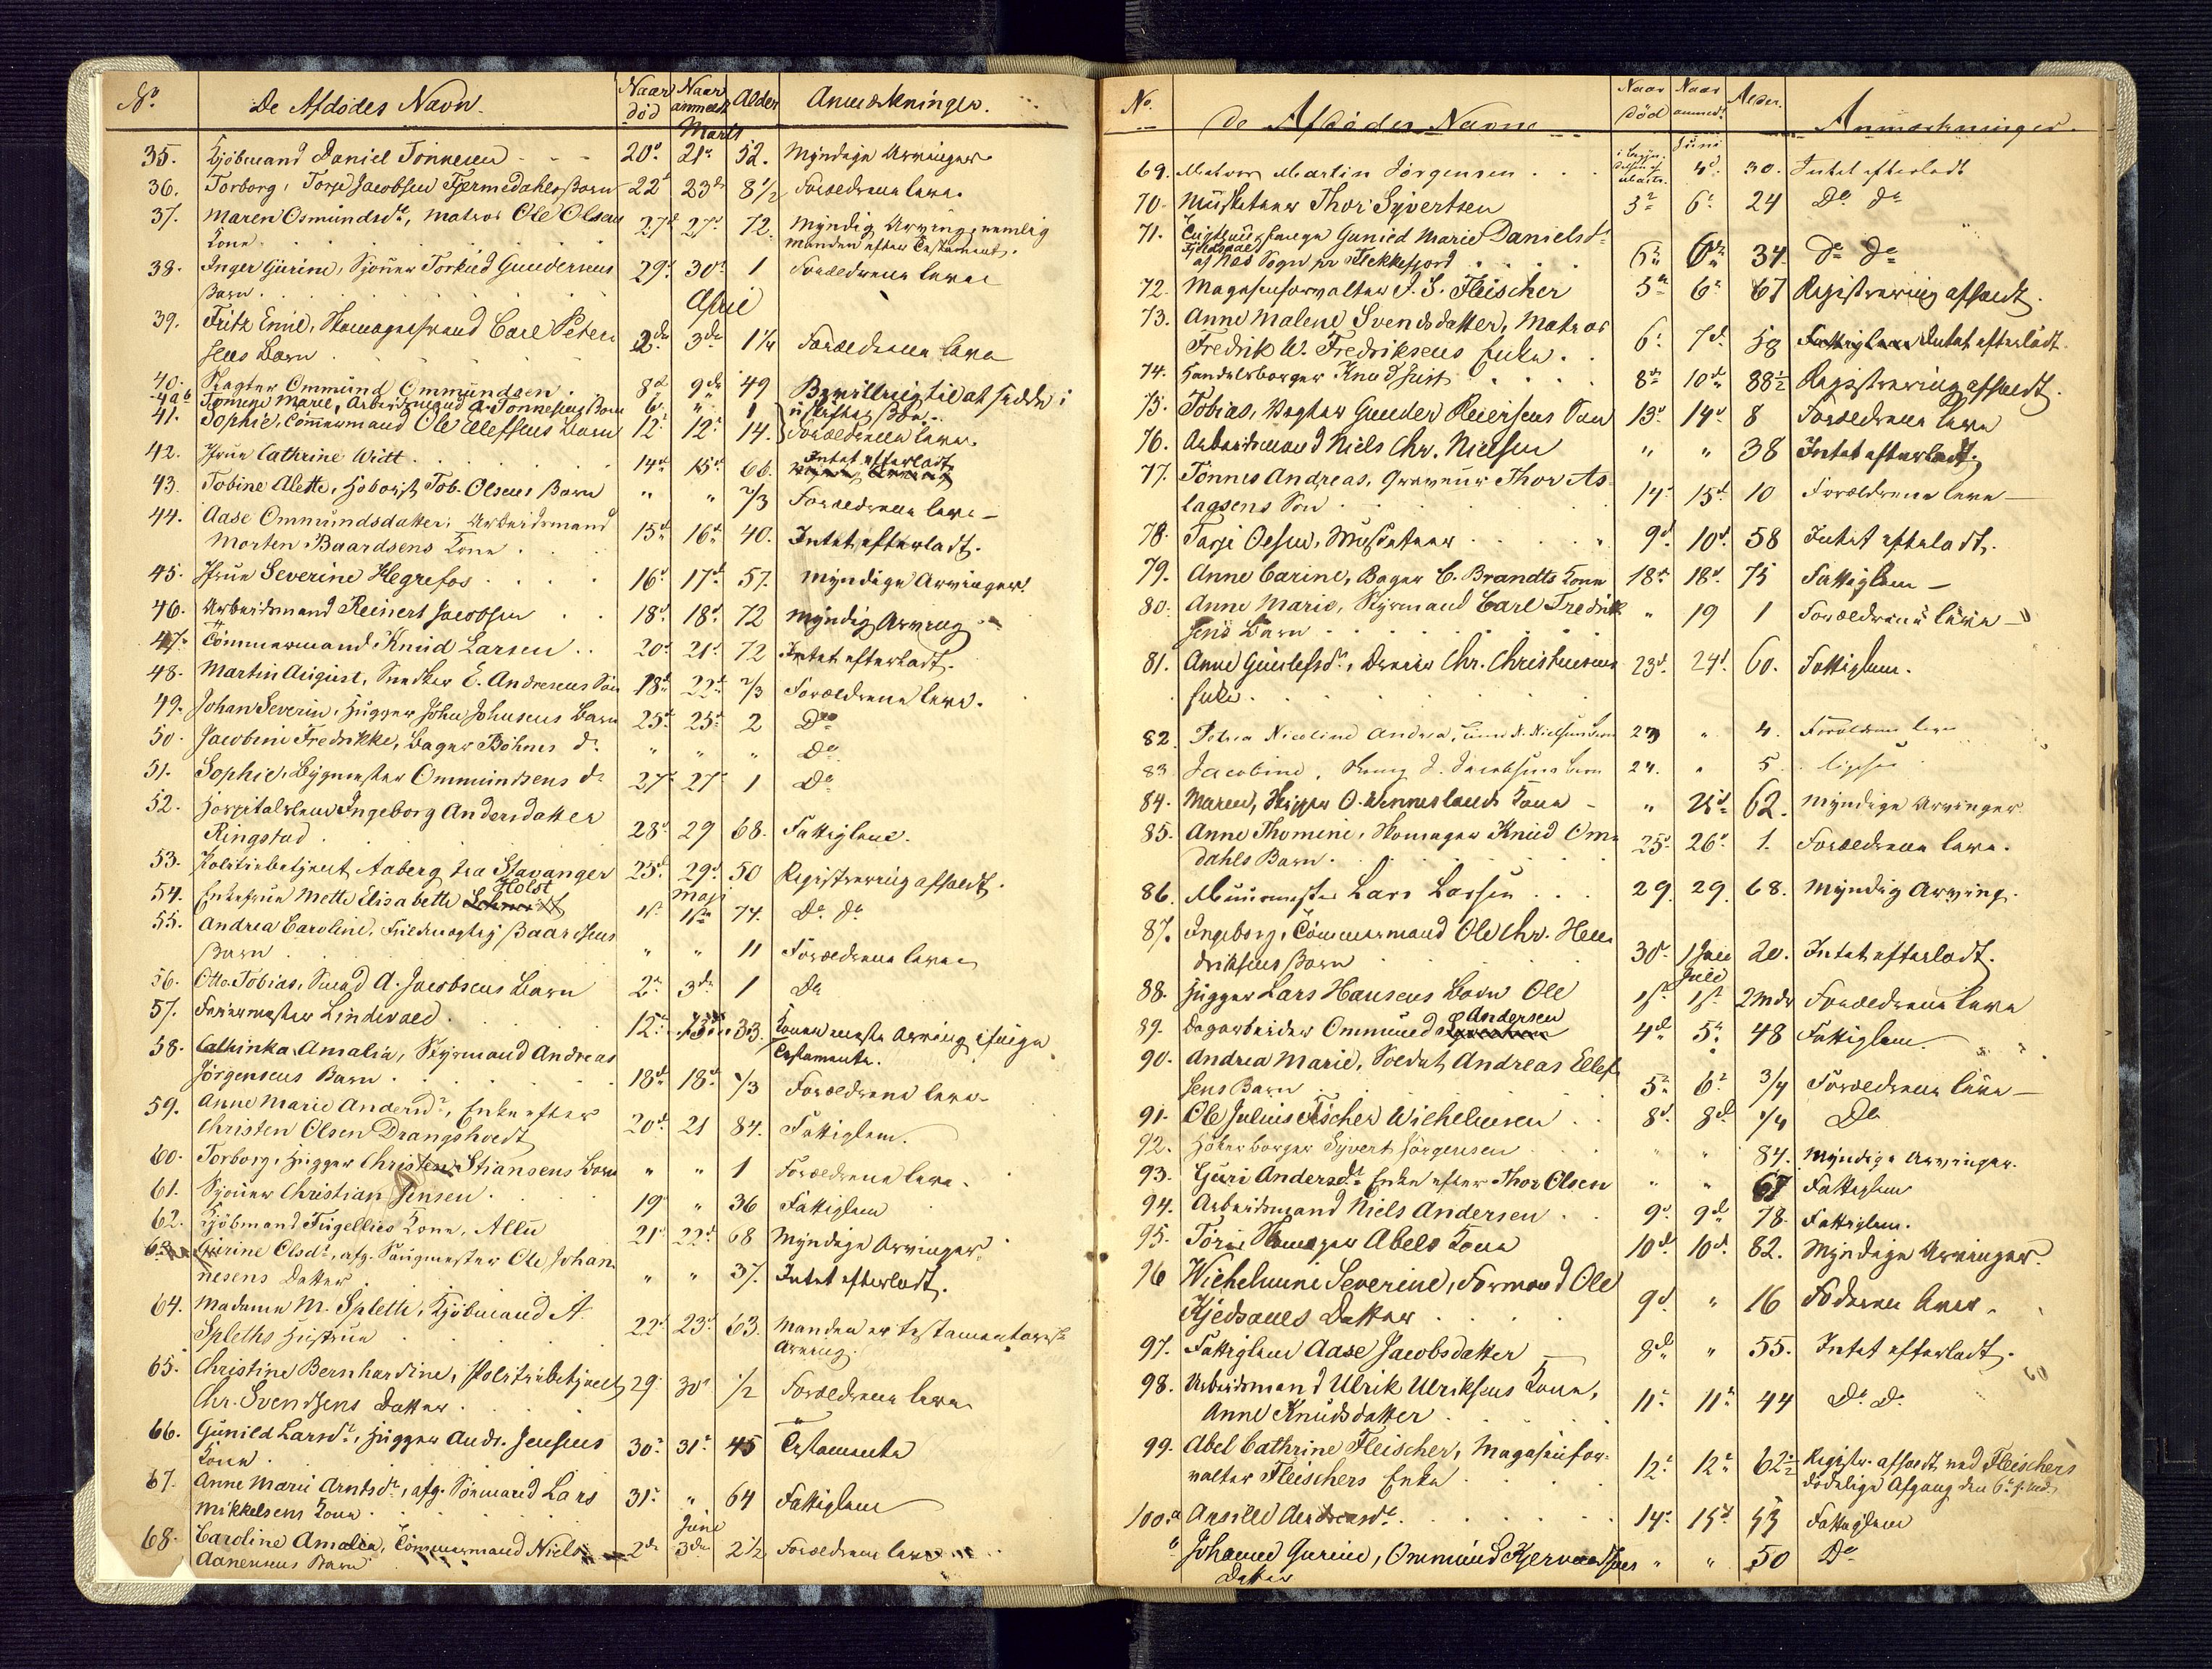 No. De Afdödes Navn. Naar död Naar anmeldt Alder Anmærkninger.
Marts
35. Kjöbmand Daniel Tönnesen 20d 21d 52. Myndige Arvinger.
36. Torborg, Torje Jacobsen Fjermedahls Barn 22d 23d 8 1/2 Forældrene leve.
37. Maren Osmundsdr, Matros Ole Olsens 27d 27d 72. Myndig Arving, nemlig
Kone. Manden efter Testament.
38. Inger Gurine, Sjömm Torkild Gundersens 29d 30d 1 Forældrene leve
Barn.
April
39. Fritz Emil, Skomagersvend Carl Peter-
sens Barn 2den 3die 1 1/4 Forældrene leve
40. Vægter Ommund Ommundsen. 8d 9de 49 Bevilling til at sidde i
40 b Tomine Marie, Arbeidsmand A. Tönnesens Barn 6. " 1 uskiftet Bo.
41. Sophie, Tömmermand Ole Ellefsens Barn 12d 12d 14. Forældrene leve.
42. Jfrue Cathrine Witt 14d 15d 66. Intet efterladt
43. Tobine Alette, Tob. Olsens Barn " " 2/3 Forældrene leve
44. Aase Ommundsdatter, Arbeidsmand
Morten Baardsens Kone 15d 16d 40. Intet efterladt.
45. Jfrue Severine Hegrefos 16d 17d 57. Myndige Arvinger.
46. Arbeidsmand Reinert Jacobsen 18d 18d 72 Myndig Arving
47. Tömmermand Knud Larsen 20d 21d 72 Intet efterladt.
48. Martin August, Snedker E. Andresens Sön 18d 22d 2/3 Forældrene leve.
49. Johan Severin, Hugger John Johnsens Barn 25d 25d 2 Do
50. Jacobine Fredrikke, Bager Böhmes do " " " Do
51. Sophie, Bygmester Ommundsens do 27d 27d 1 Do
52. Hospitalslem Ingeborg Andersdatter
Ringstad 28d 29 68. Fattiglem.
53. Politiebetjent Aaberg fra Stavanger 25d 29d 50 Registrering afholdt.
Maji
54. Enkefrue Mette Elisabeth Holst 1st 1ste 74. Do do
55. Andrea Caroline, Baardsens
Barn " " 11 Forældrene leve
56. Otto Tobias, Smed A. Jacobsens Barn 2d 3de 1 Do
57. Farvermester Lindwald. 12te 33 Konen eneste Arving ifölge
Testamente.
58. Cathinka Amalia, Styrmand Andreas
Jörgensens Barn 18d 18d 1/3 Forældrene leve.
59. Anne Marie Andersdr, Enke efter
Christen Olsen Drangsholdt 20d 21 84. Fattiglem.
60. Torborg, Hugger Christen Stiansens Barn " " 1 Forældrene leve.
61. Sjömm Christian Jensen. 19 " 36 Fattiglem
62. Kjöbmand Fugellies Kone, 21d 22d 68 Myndige Arvinger.
63. Gurine Olsdr, afg. Saugmester Ole Johan-
nesens Datter " " 37. Intet efterladt.
64. Madame M. Spleth, Kjöbmand A.
Spleths Hustrue 22d 23d 63. Manden er testamentarisk
Arving.
65. Christine Bernhardine, Politiebetjent 29. 30d 1/2 Forældrene leve
Chr. Svendsens Datter.
66. Gunild Larsdr, Hugger Andr. Jensens 30d 31d 45 Testamente
Kone.
67. Anne Marie Arntsdr, afg. Sömand Lars 31d " 64 Fattiglem
Mikkelsens Kone
Juni
68. Caroline Amalia, Tömmermand Niels 2de 3die 2 1/2 Forældrene leve
Aanensens Barn
No. De Afdödes Navne Naar död Naar anmed. Alder. Anmærkninger.
Juni
69. Matros Martin Jörgensen i Begyn-delsen af Marts. 4d 30. Intet efterladt
70. Musketeer Thor Syvertsen 5d 6d 24 Do do
71. Gunild Marie Danielsdr
af Næs Sogn pr Flekkefjord 6d 6d 34 Do do
72. Magasinforvalter Fleischer 5d 6d 67 Registrering afholdt.
73. Anne Malene Svendsdatter, Matros
Fredrik W. Fredriksens Enke. 6d 7d 58 Fattiglem Intet efterladt.
74. Handelsborger Knud 8d 10d 88 1/2 Registrering afholdt.
75. Tobias, Vægter Gunder Reiersens Sön 13d 14d 8 Forældrene leve
76. Arbeidsmand Niels Chr. Nielsen " " 38 Intet efterladt.
77. Tönnes Andreas, Graveur Thor As-
lagsens Sön 14d 15d 10 Forældrene leve
78. Tarje Olsen, Musketeer 9d 10d 58 Intet efterladt.
79. Anne Carine, Bager C. Brandts Kone 18d 18d 75 Fattiglem
80. Anne Marie, Styrmand Carl Fredrik-
sens Barn " 19 1 Forældrene leve
81. Anne Gunlefsdr, Dreier Chr. Christensens 23d 24d 60. Fattiglem.
Enke.
82. Petrea Nicoline Andrea, N. Nielsens Barn 23 " 4. Forældrene leve
83. Jacobine, J. Jacobsens Barn 24. " 5. ligesaa
84. Maren, Skipper O. Venneslands Kone " 25d 62. Myndige Arvinger
85. Anne Thomine, Skomager Knud Om-
dahls Barn. 25d 26d 1. Forældrene leve.
86. Muurmester Lars Larsen 29 29 68. Myndig Arving.
87. Ingeborg, Tömmermand Ole Chr. Hen-
driksens Barn 30d 1 Juli 20. Intet efterladt.
Juli
88. Hugger Lars Hansens Barn Ole 1st 1st 2mdr Forældrene leve
89. Dagarbeider Ommund Andersen 4d 5d 48 Fattiglem
90. Andrea Marie, Soldat Andreas Ellef-
sens Barn 5d 6d 3/4 Forældrene leve
91. Ole Julius Fischer Wilhelmsen 8d 8d 1/4 Do
92. Höker borger Syvert Jörgensen " " 84. Myndige Arvinger.
93. Guri Andersdr Enke efter Thor Olsen " " 67 Fattiglem
94. Arbeidsmand Niels Andersen 9d 9d 78. Fattiglem.
95. Skomager Abels Kone 10d 10d 82. Myndige Arvinger.
96 Wilhelmine Severine, Formand Ole
Kjedsaues Datter 9d " 16 Foderen lever.
97. Fattiglem Aase Jacobsdatter 8d " 55. Intet efterladt.
98. Arbeidsmand Ulrik Ulriksens Kone,
Anne Knudsdatter 11d 11d 44 Do Do
99. Abel Cathrine Fleischer, Magasinfor-
valter Fleischers Enke 12d 12d 62 1/2 Registr. afholdt ved Fleischers
dödelige Afgang den 6d
100.a Andreasdr 14d 15d 53 Fattiglem
b Johanne Gurine, Ommund
Datter " " 50 Do